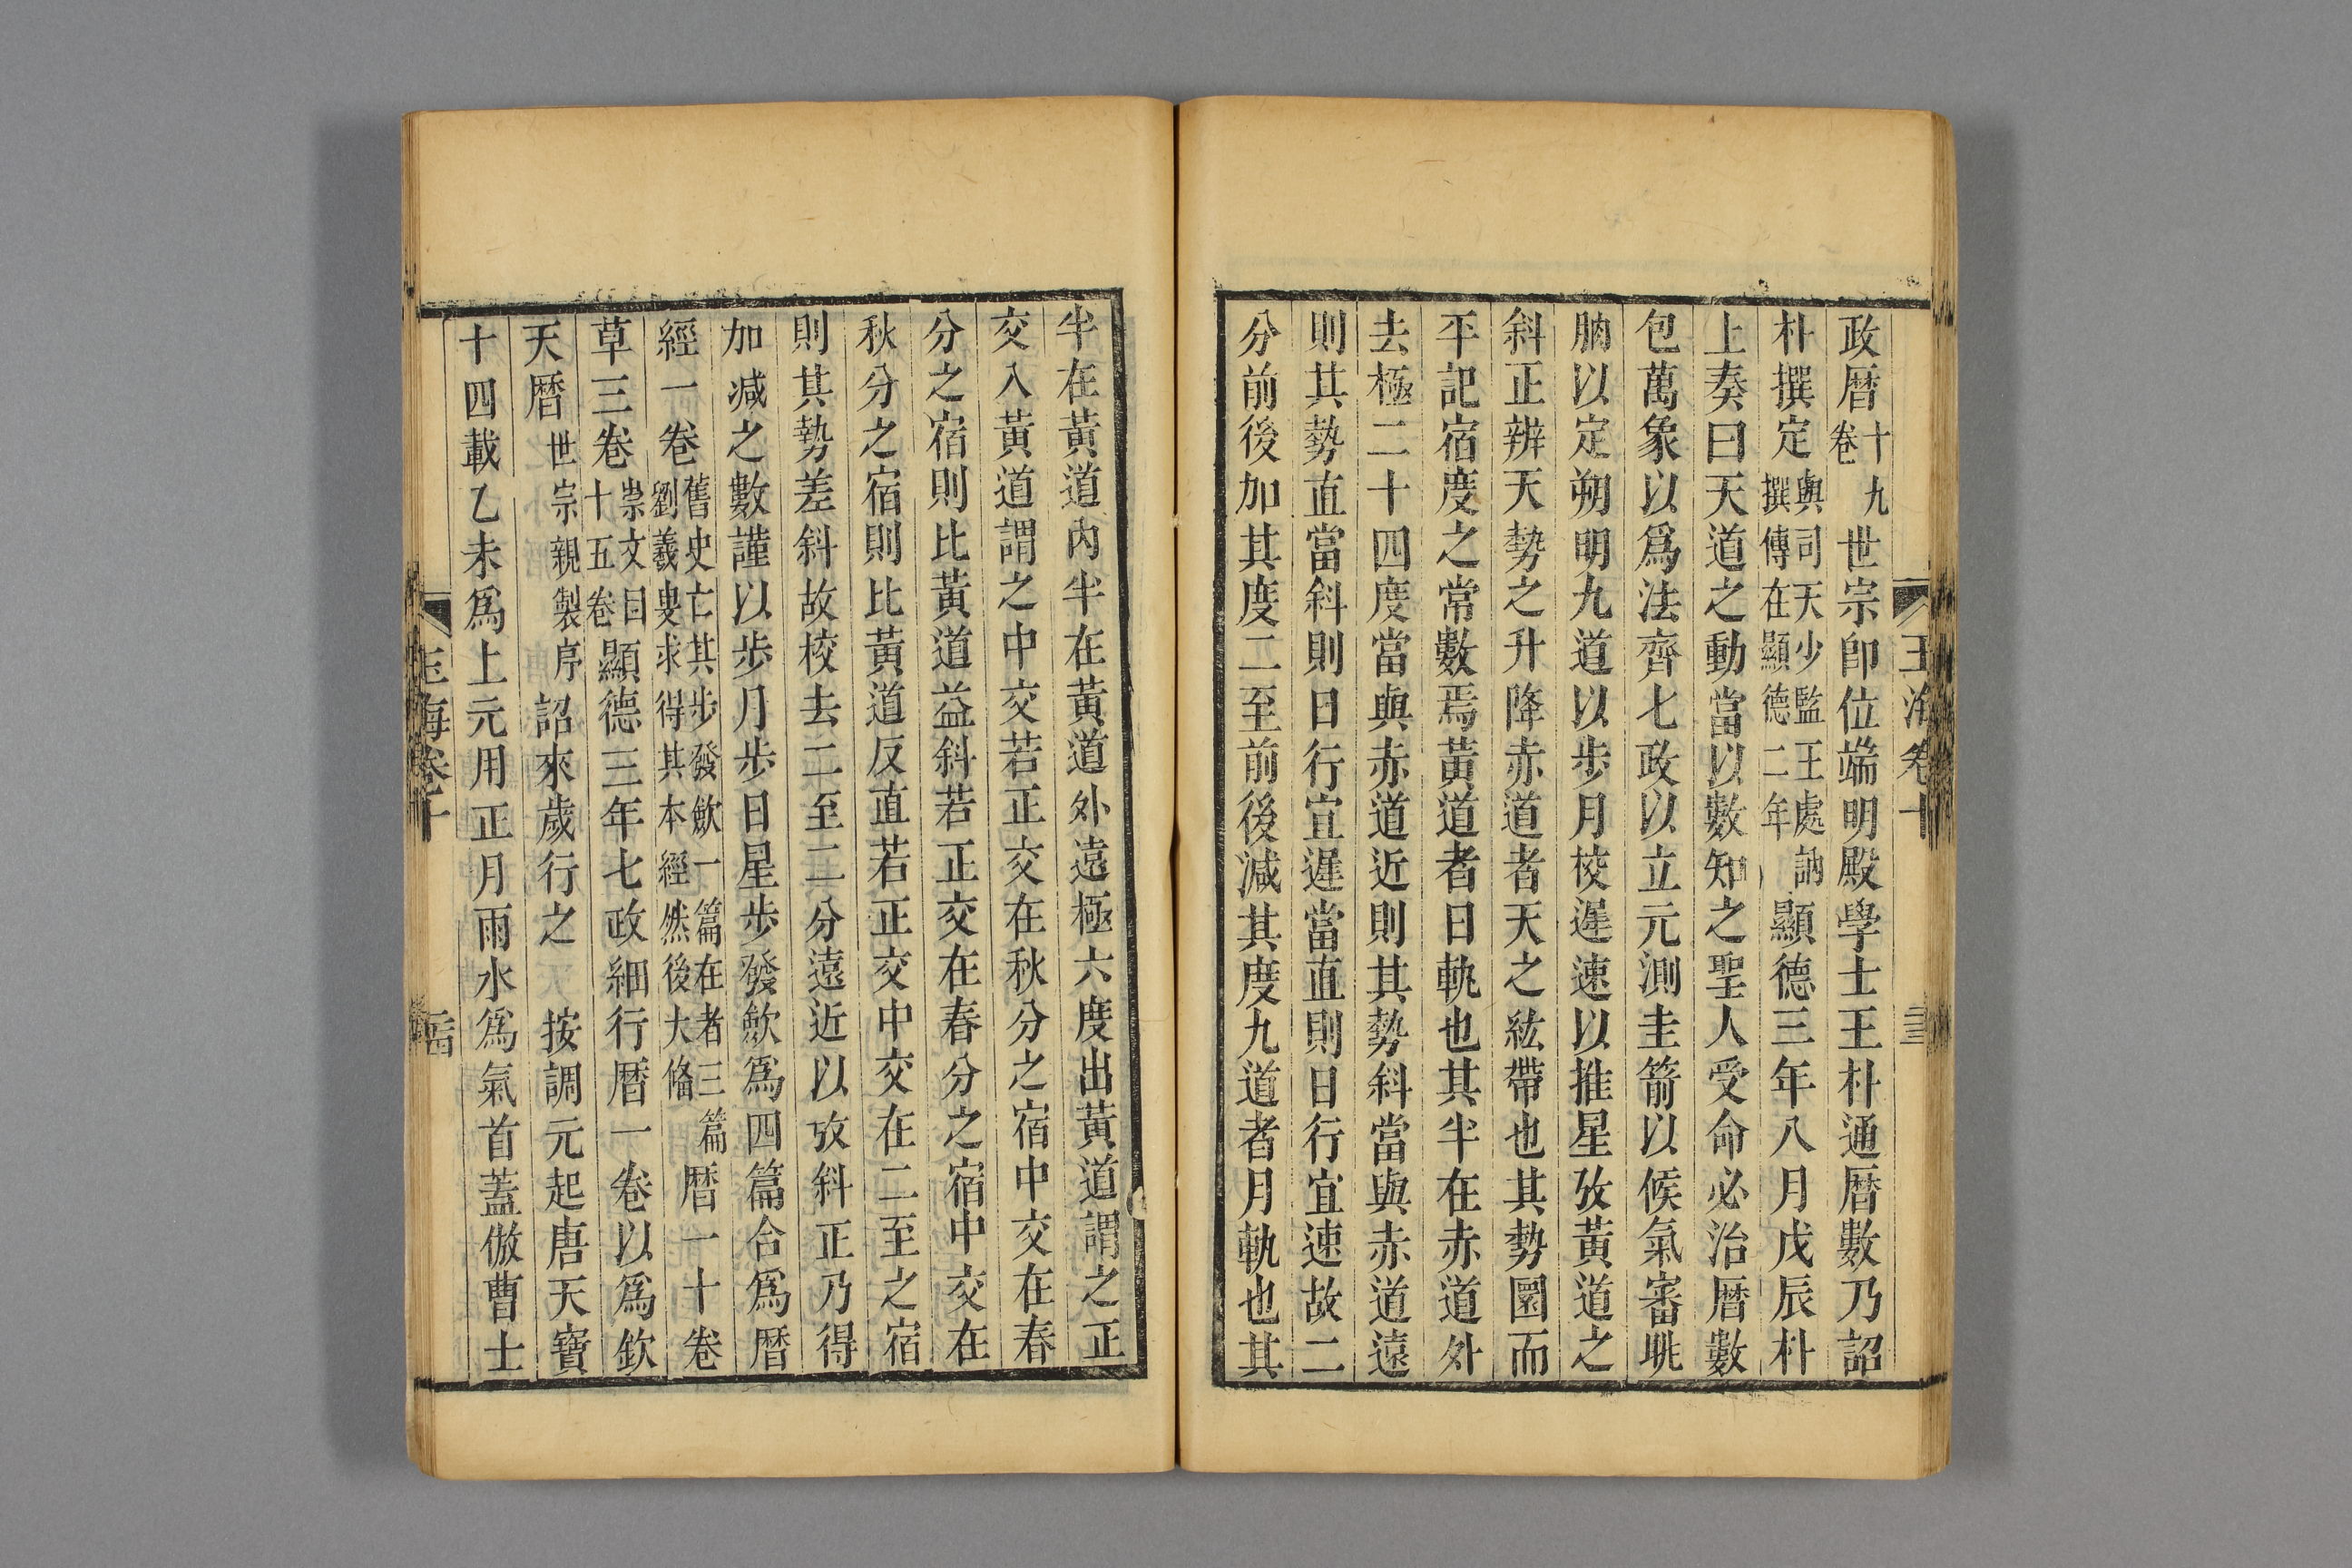 玉海卷十
政曆十九卷世宗卽位端明殿學士王朴通曆數乃詔
朴撰定與司天少監王處訥撰傳在顯德二年顯德三年八月戊辰朴
上奏曰天道之動當以數知之聖人受命必治曆數
包萬象以爲法齊七政以立元測圭箭以候氣審朓
朒以定朔明九道以步月校遲速以推星攷黃道之
斜正辨天勢之升降赤道者天之紘帶也其勢圜而
平記宿度之常數焉黃道者日軌也其半在赤道外
去極二十四度當與赤道近則其勢斜當與赤道遠
則其勢直當斜則日行宜遲當直則日行宜速故二
分前後加其度二至前後減其度九道者月軌也其
半在黃道內半在黃道外遠極六度出黃道謂之正
交入黃道謂之中交若正交在秋分之宿中交在春
分之宿則比黃道益斜若正交在春分之宿中交在
秋分之宿則比黃道反直若正交中交在二至之宿
則其勢差斜故校去二至二分遠近以攷斜正乃得
加减之數謹以步月步日星步發歛爲四篇合爲曆
經一卷舊史亡其步發歛一篇在者三篇劉羲叟求得其本經然後大備曆一十卷
草三卷崇文目十五卷顯德三年七政細行曆一卷以爲欽
天曆世宗親製序詔來歲行之　按調元起唐天寶
十四載乙未爲上元用正月雨水爲氣首蓋倣曹士
玉海卷十